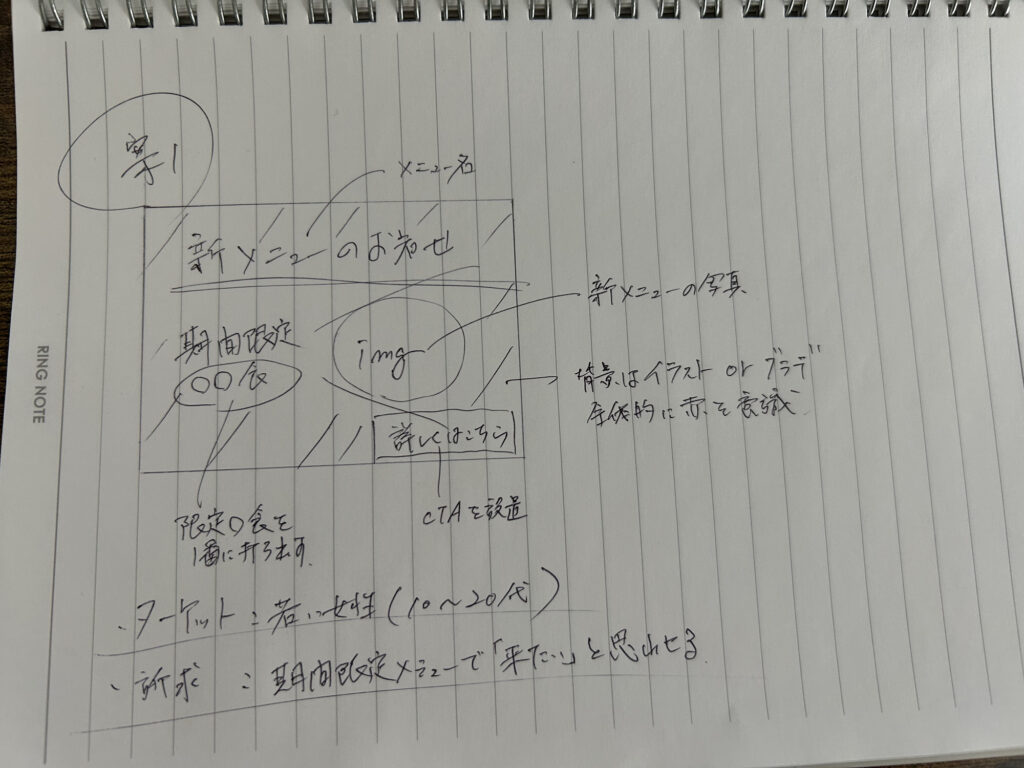 案1
メニュー名
新メニューのお知せ
新メニューの写真
期間限定
〇〇食
img
背景はイラスト or グラデ
全体的に赤を意識
詳しくはこちら
限定〇食を
1番に打ち出す
CTAを設置
・ターゲット：若い女性（10～20代）
・訴求：期間限定メニューで「来たい」と思わせる
RING NOTE